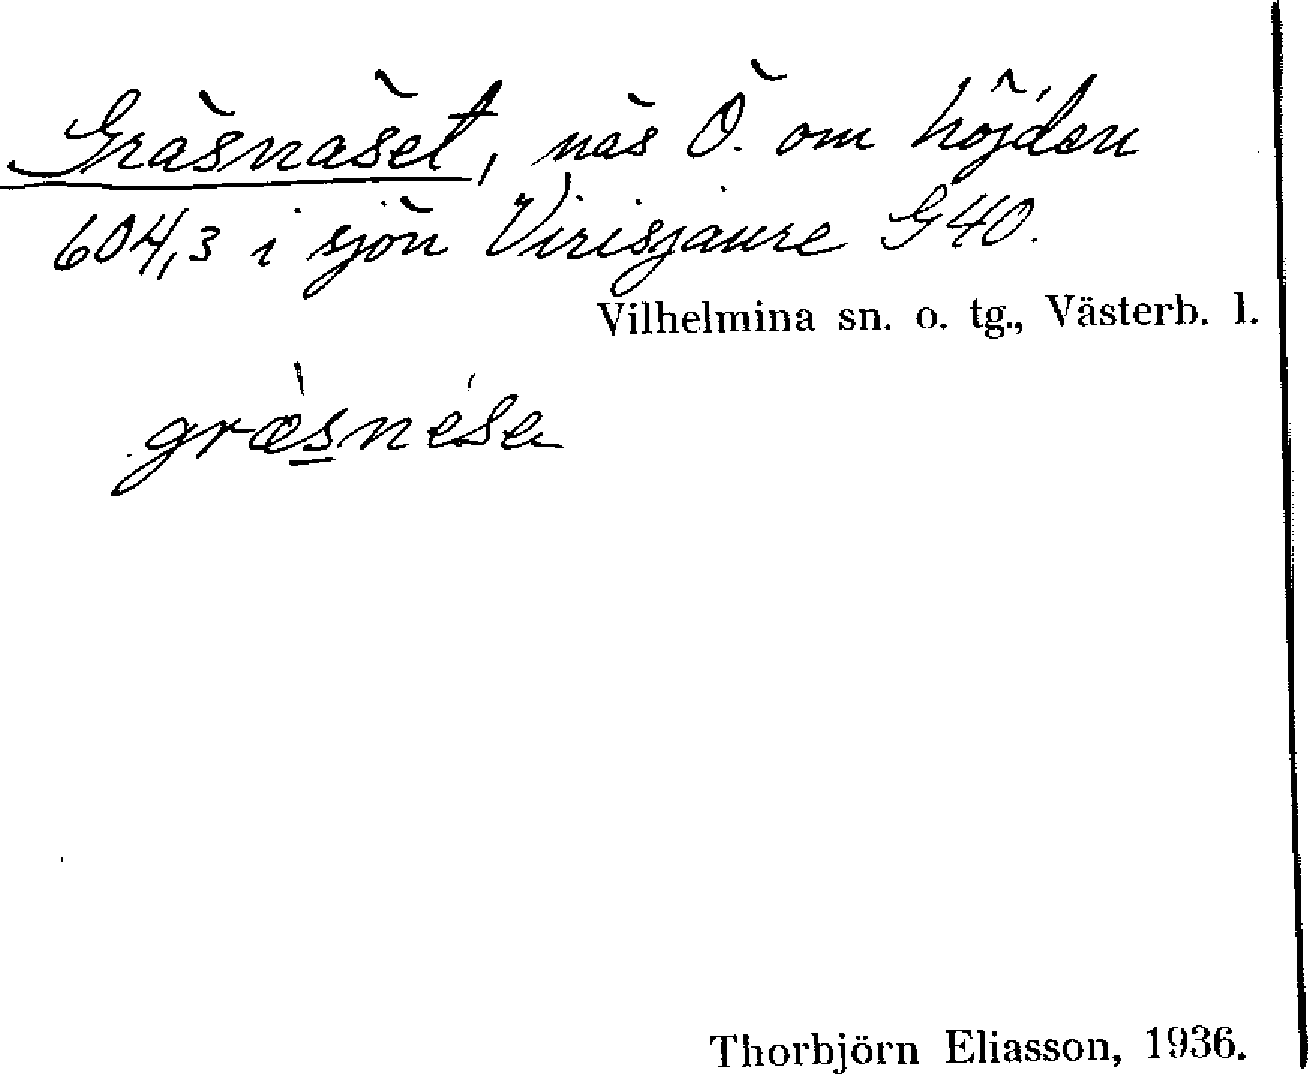 Gräsnäset, näs Ö. om höjden
604,3 i sjön Virisjaure G40.
Vilhelmina sn. o. tg., Västerb. l.
græ̀snésa
Thorbjörn Eliasson, 1936.